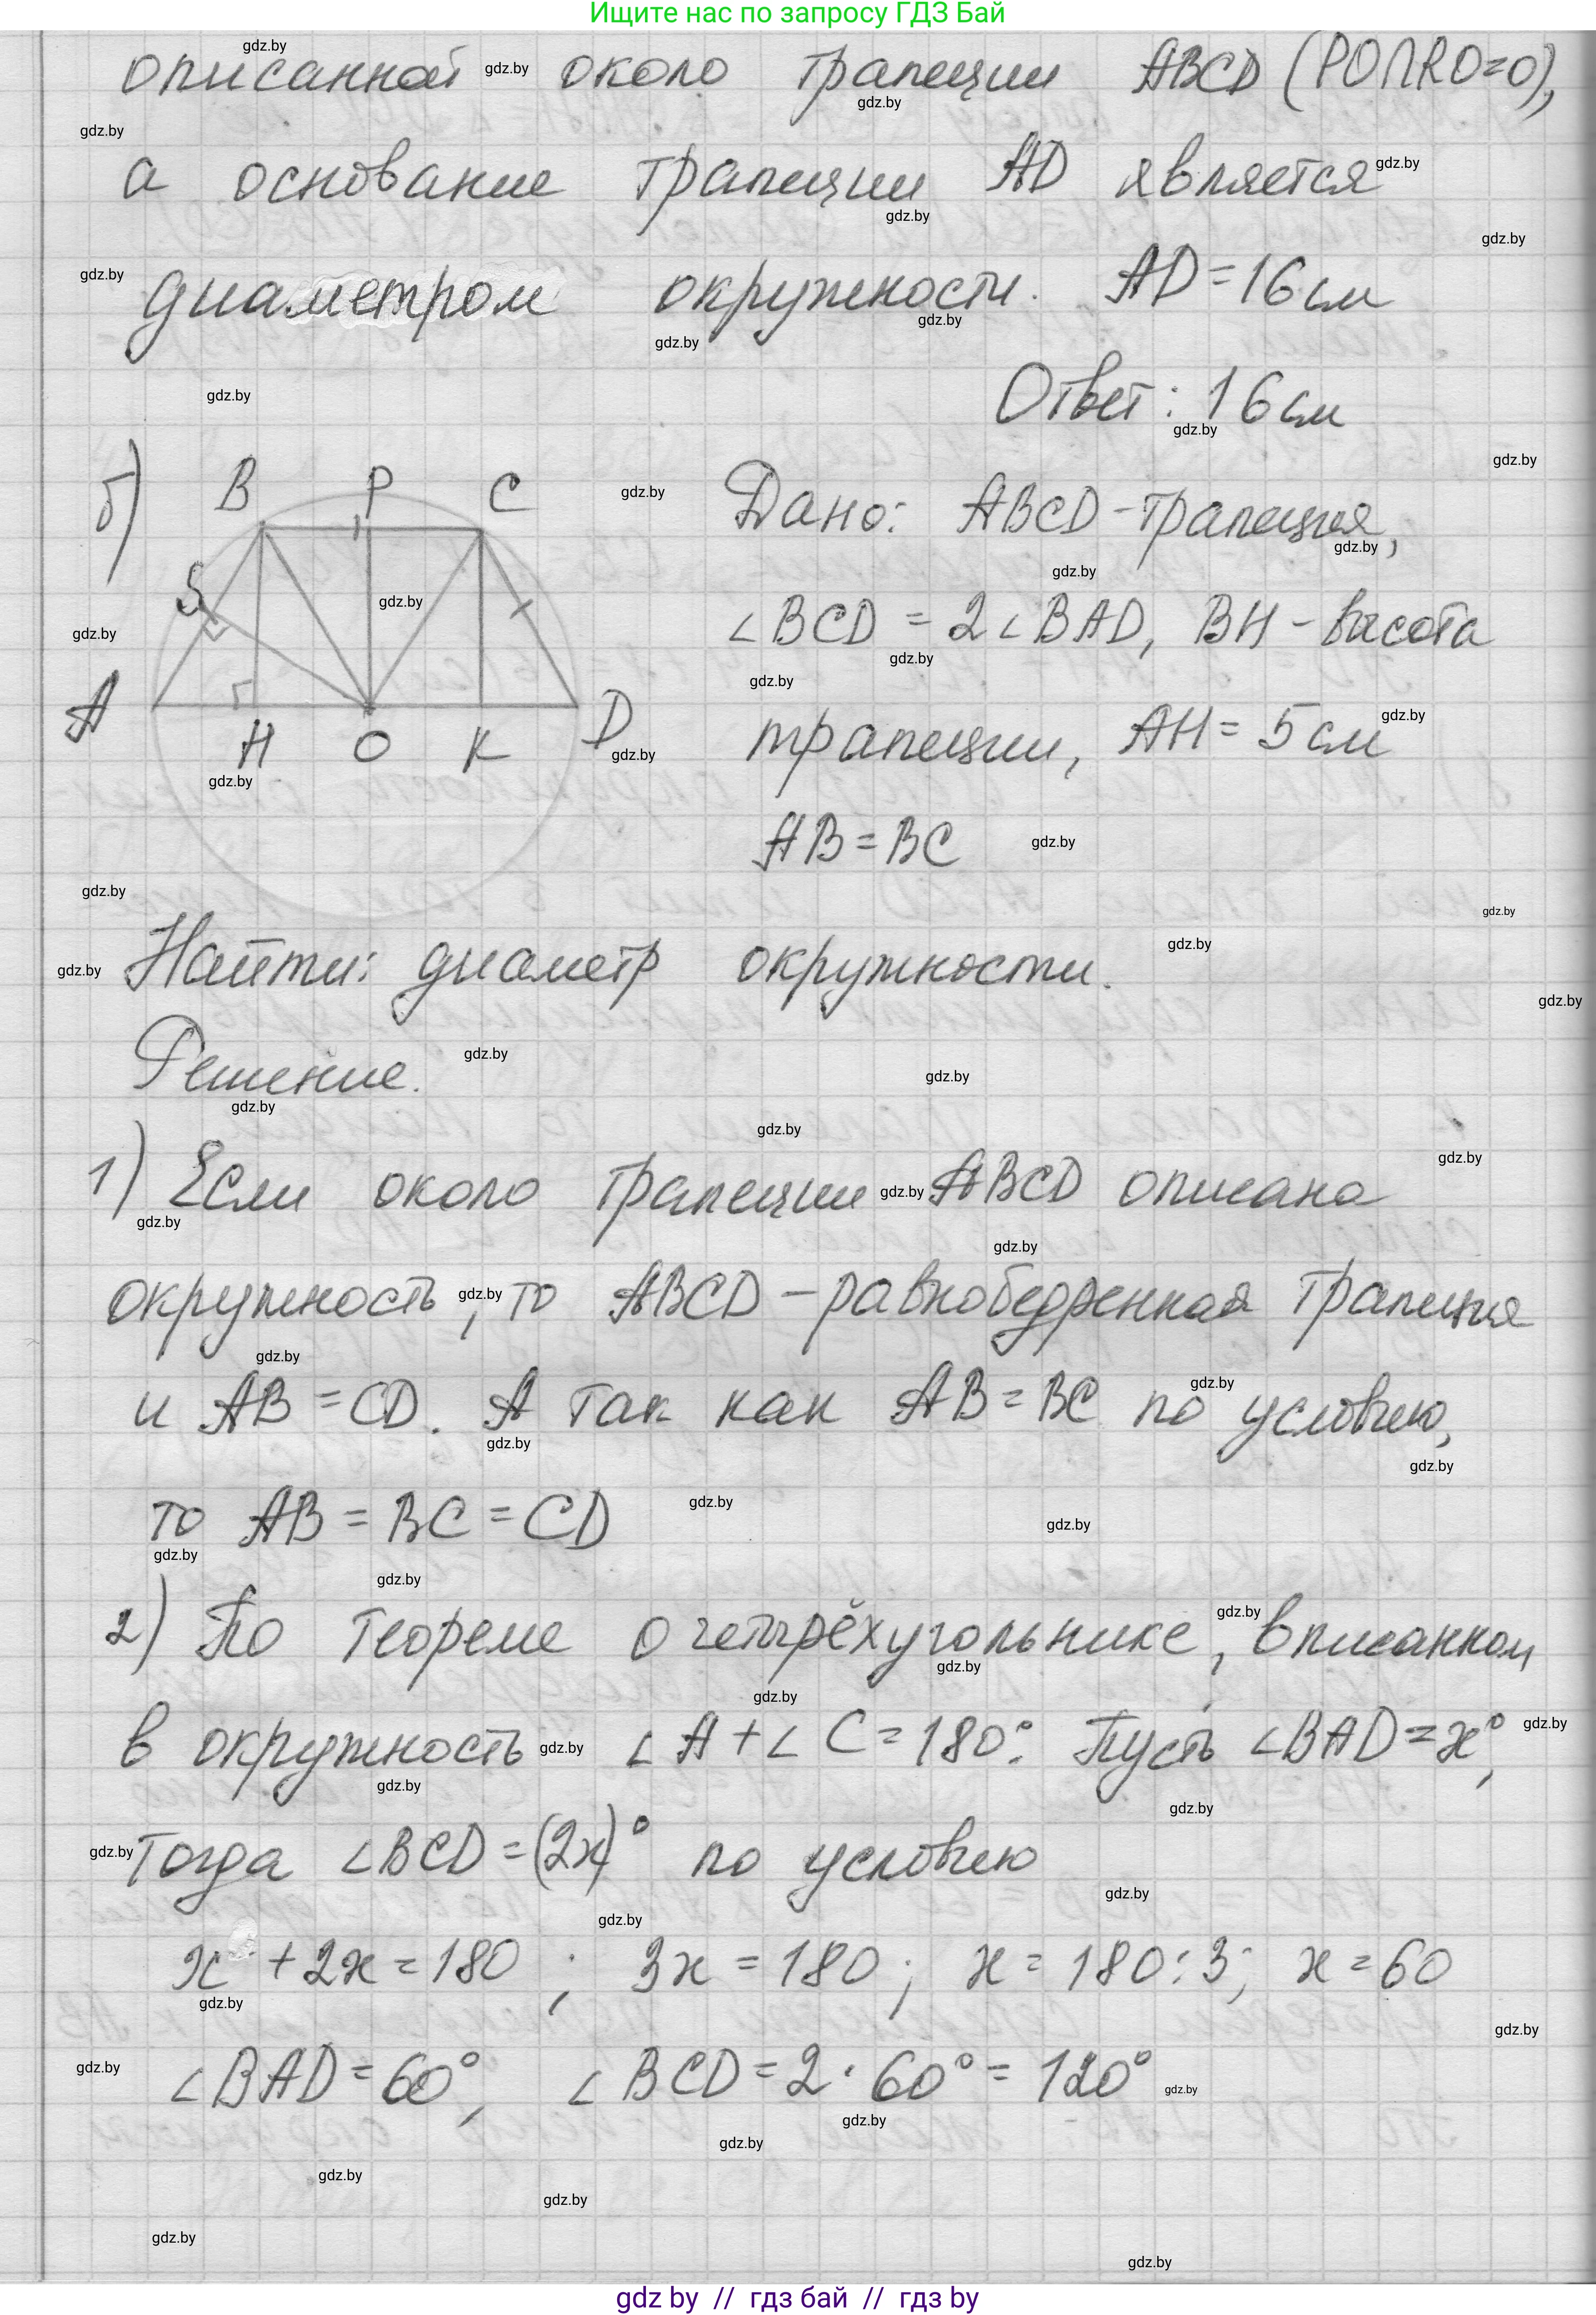 Ищите нас по запросу ГДЗ Бай
описанной около трапеции ABCD (PO∩RO=O),
а основание трапеции AD является
диаметром окружности. AD=16см
Ответ: 16см
б) B P C S A H O K D
Дано: ABCD-трапеция,
∠BCD = 2∠BAD, BH - высота
трапеции, AH = 5см
AB = BC
Найти: диаметр окружности.
Решение.
1) Если около трапеции ABCD описана
окружность, то ABCD - равнобедренная трапеция
и AB = CD. А так как AB = BC по условию,
то AB = BC = CD
2) По теореме о четырёхугольнике, вписанном
в окружность ∠A + ∠C = 180°. Пусть ∠BAD = x°,
тогда ∠BCD = (2x)° по условию
x + 2x = 180 ; 3x = 180 ; x = 180 : 3; x = 60
∠BAD = 60°, ∠BCD = 2 · 60° = 120°
gdz by // гдз бай // gdz by